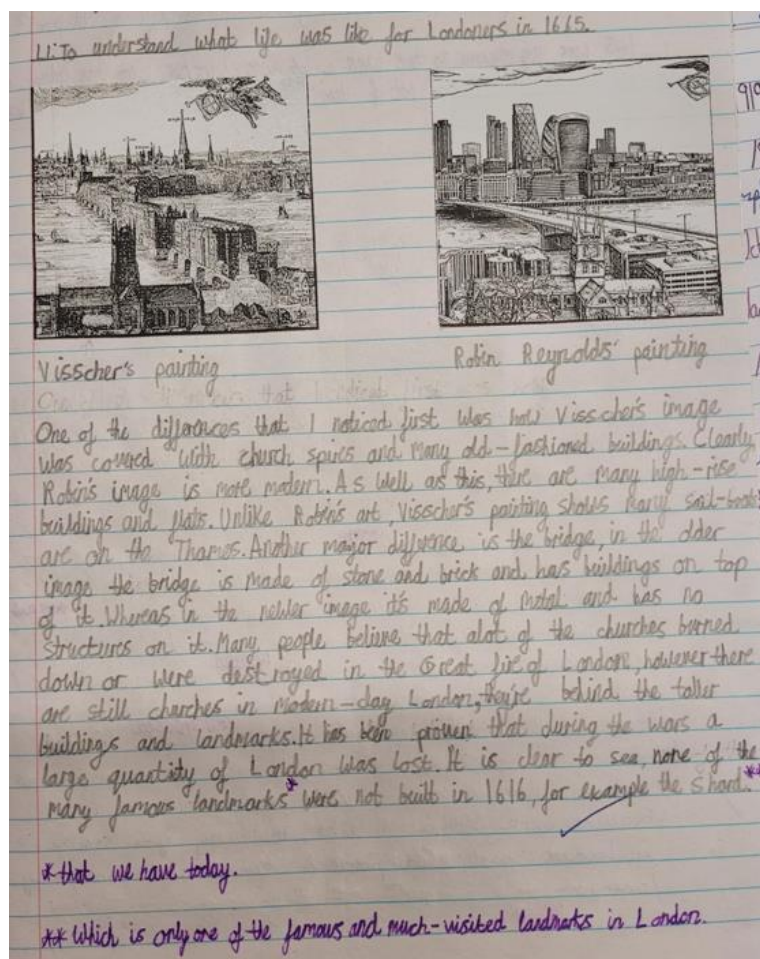 LI: To understand what life was like for Londoners in 1665.
Visscher's painting
Robin Reynolds' painting
One of the differences that I noticed first was how Visscher's image
was covered with church spires and many old-fashioned buildings. Clearly
Robin's image is more modern. As well as this, there are many high-rise
buildings and flats. Unlike Robin's art, Visscher's painting shows many sail-boats
are on the Thames. Another major difference is the bridge, in the older
image the bridge is made of stone and brick and has buildings on top
of it. Whereas in the newer image it's made of metal and has no
structures on it. Many people believe that alot of the churches burned
down or were destroyed in the Great fire of London, however there
are still churches in modern-day London, they're behind the taller
buildings and landmarks. It has been proven that during the wars a
large quantity of London was lost. It is clear to see, none of the
many famous landmarks* were not built in 1616, for example the Shard.**
*that we have today.
** Which is only one of the famous and much-visited landmarks in London.